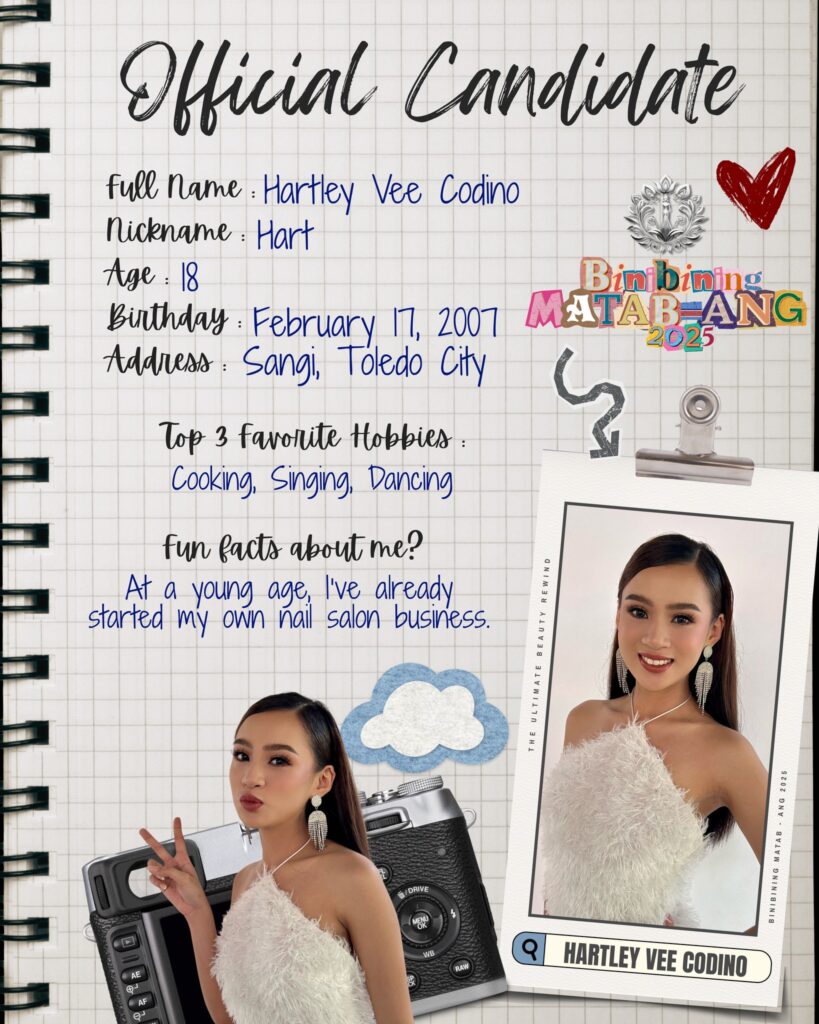 Official Candidate
Full Name : Hartley Vee Codino
Nickname : Hart
Age : 18
Birthday : February 17, 2007
Address : Sangi, Toledo City
Binibining
MATAB-ANG
2025
Top 3 Favorite Hobbies :
Cooking, Singing, Dancing
Fun facts about me?
At a young age, I've already
started my own nail salon business.
THE ULTIMATE BEAUTY REWIND
BINIBINING MATAB - ANG 2025
HARTLEY VEE CODINO
DRIVE
MENU
OK
WB
RAW
AE
AF